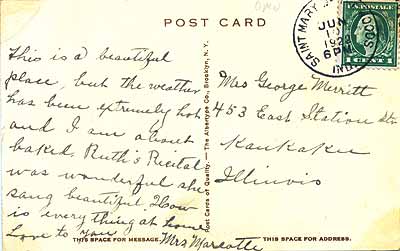 POST CARD
SAINT MARY
JUN
10
6 PM
IND
U.S. POSTAGE
1 CENT 1
This is a beautiful
place, but the weather
has been extremely hot
and I am about
baked. Ruth's Recital
was wonderful she
sang beautiful How
is every thing at home
Love to you Mrs Marcotte
Post Cards of Quality. — The Albertype Co., Brooklyn, N. Y.
Mrs George Merritt
453 East Station Str
Kankakee
Illinois
THIS SPACE FOR MESSAGE.
THIS SPACE FOR ADDRESS.